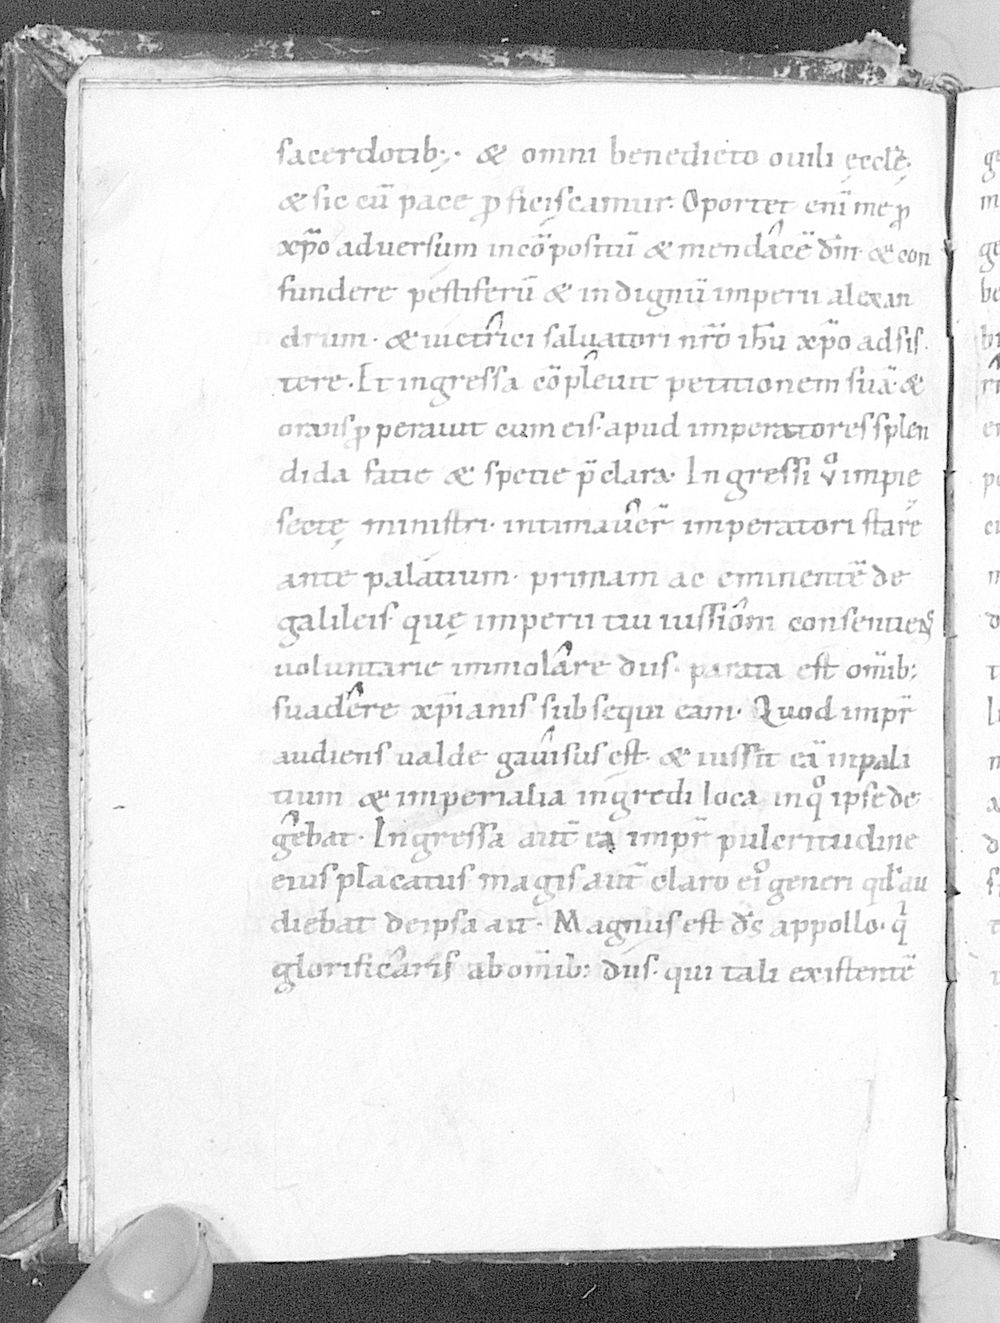 sacerdotib;· & omni benedicto ouili ęccl̄ę·
& sic cū pace ꝓficiscamur. Oportet enī me ꝓ
xp̄o adversum incōpositū & mendacē dn̄m· & con
fundere pestiferū & indignū imperii alexan
drum· & uictrici saluatori nr̄o ih̄u xp̄o adsis·
tere· Et ingressa cōpleuit petitionem suā· &
orans ꝓperauit cum eis· apud imperatores splen
dida fatie & spetie p̄clara· Ingressi v̊ impie
sectę ministri· intimaver̄ imperatori stare
ante palatium· primam ac eminentē de
galileis· quę imperii tui iussiom̄ consentiens
uoluntarie immolare diis· parata est om̄ib;
suadere xp̄ianis subsequi eam· Quod impr̄
audiens valde gavisus est· & iussit eā in pala
tium & imperialia ingredi loca in qͦ ipse de
gebat· Ingressa aut̄ ea impr̄ pulcritudine
eius placatus· magis aut̄ claro eiͦ generi qd̄ au
diebat de ipsa ait· Magnus est ds̄ appollo· qi
glorificaris ab om̄ib; diis· qui tali existentē